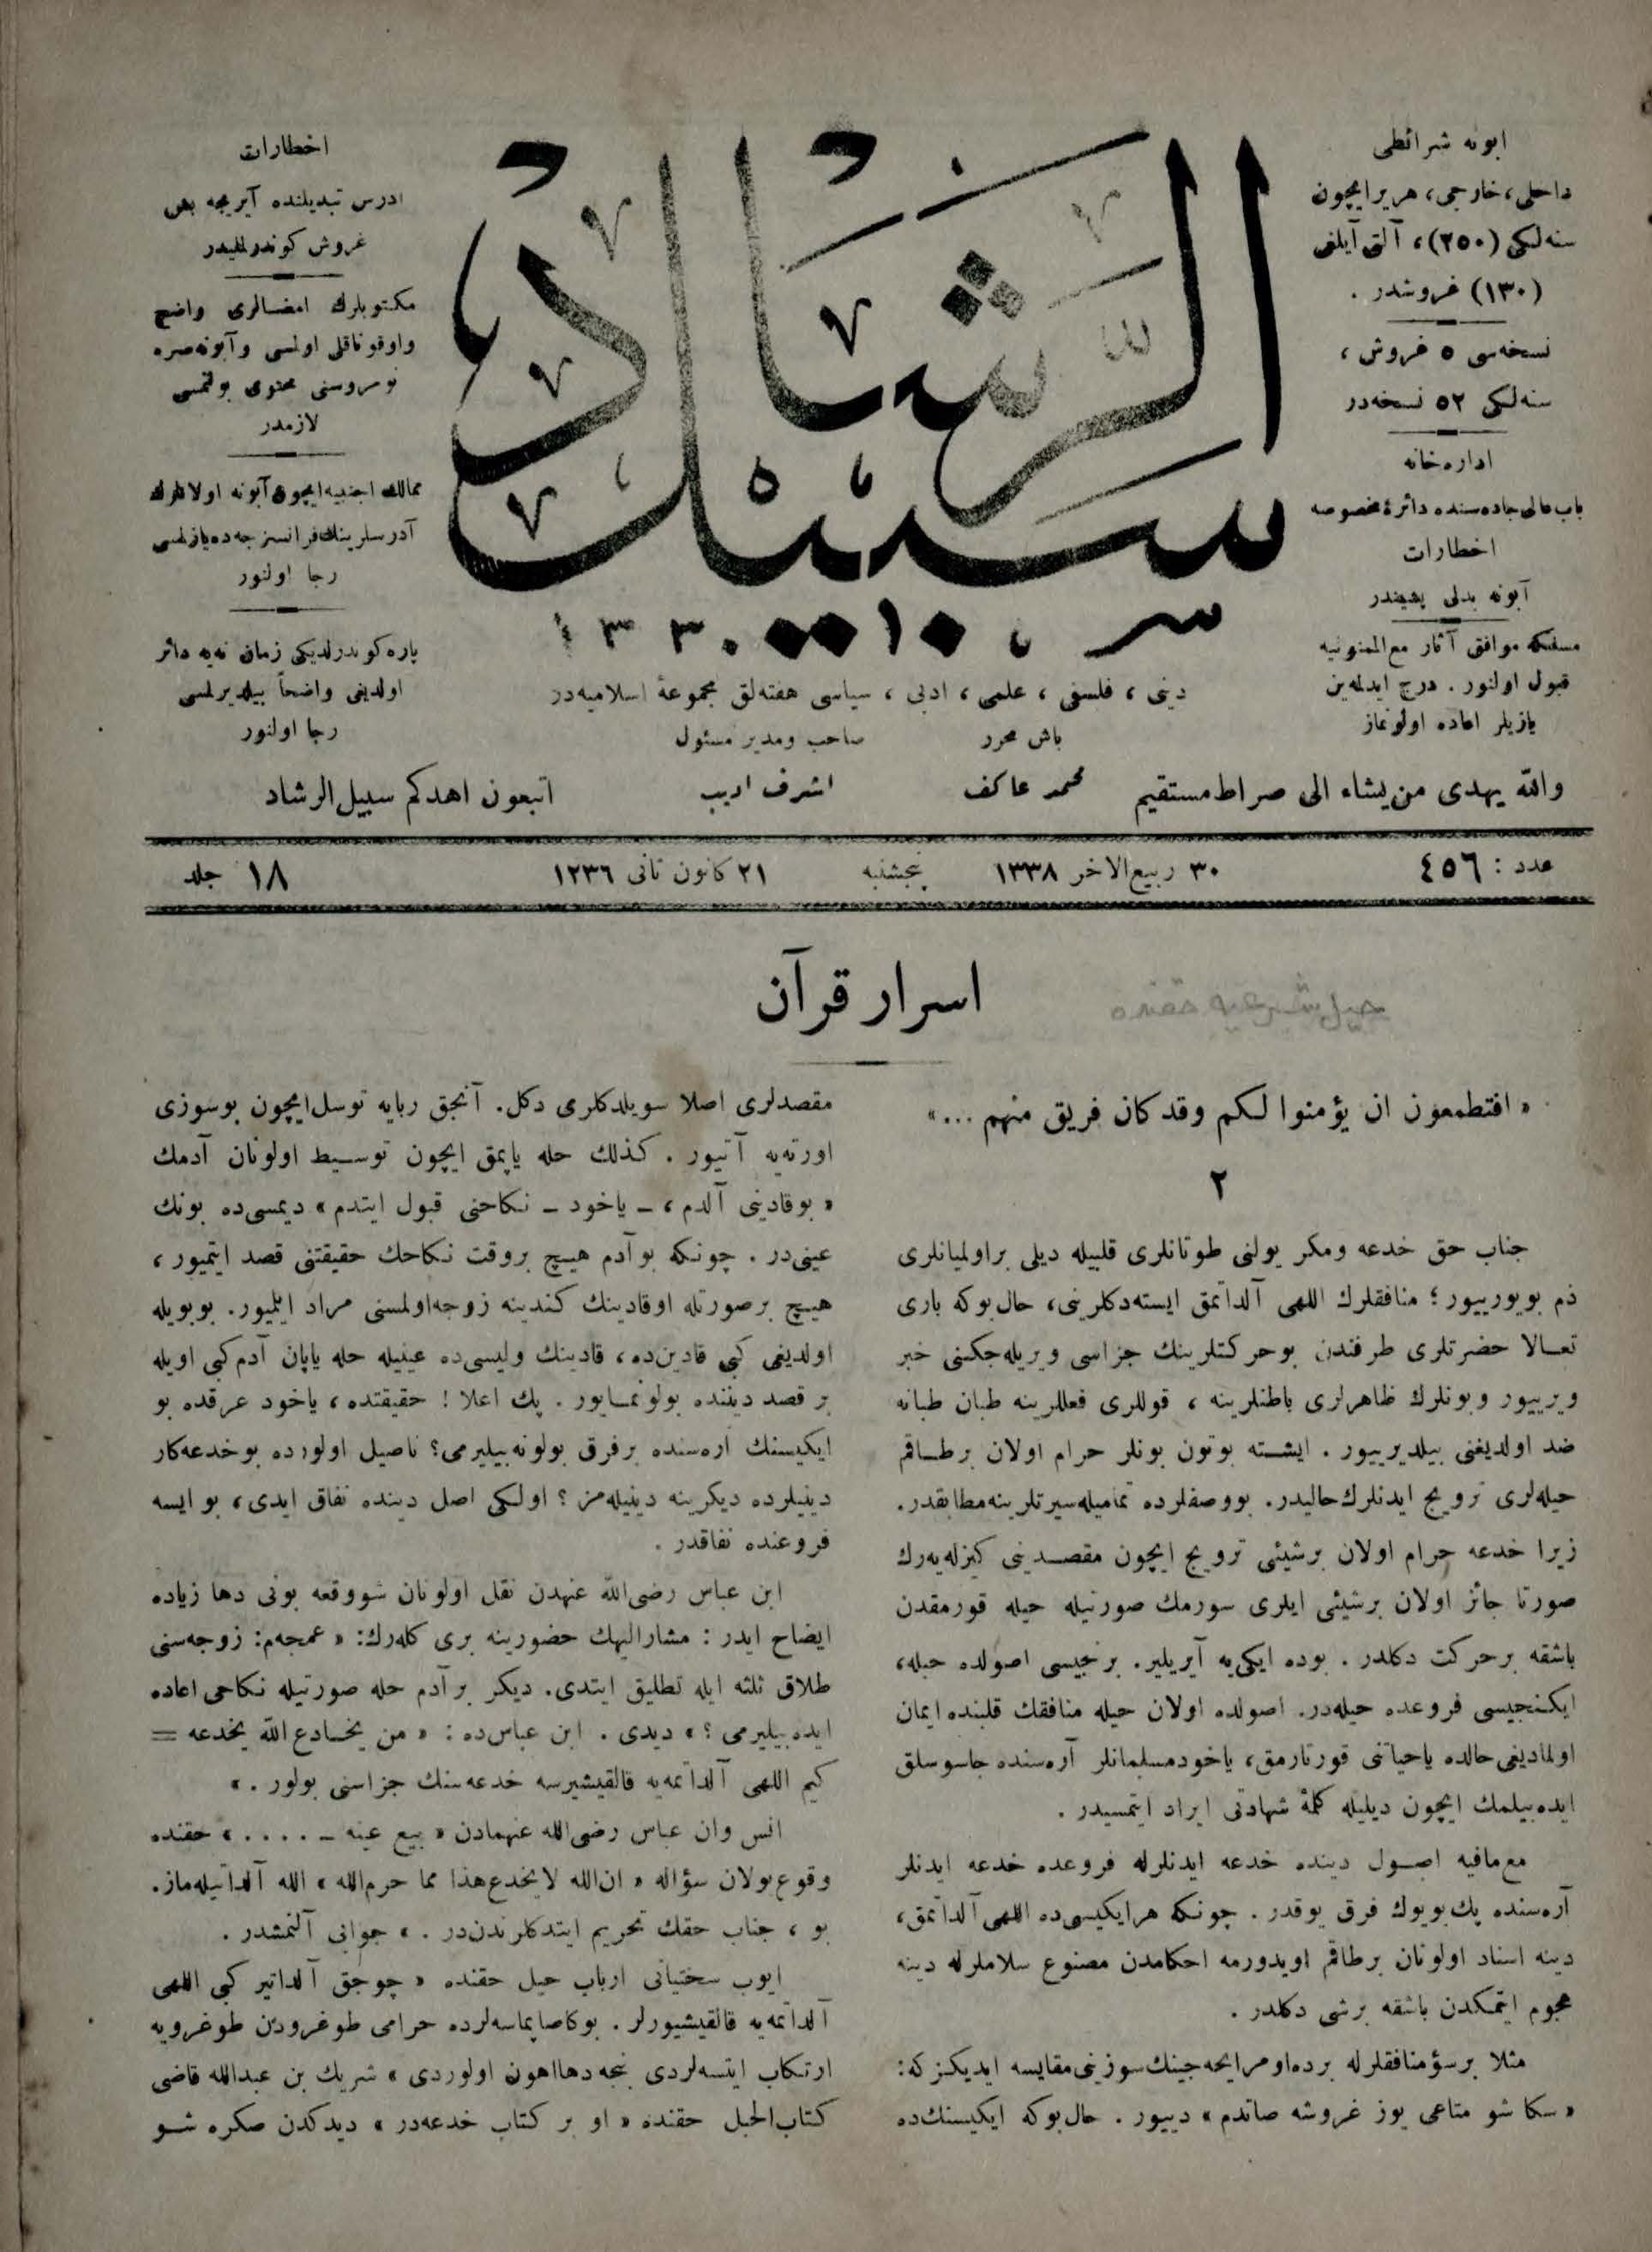 ابونه شرائطی
داخلی، خارجی، هر یر ایچون
سنه‌لکی (٢٥٠)، آلتی آیلغی
(١٣٠) غروشدر .
نسخه‌سی ٥ غروش ،
سنه‌لکی ٥٢ نسخه‌در
اداره‌خانه
باب عالی جاده‌سنده دائرهٔ مخصوصه
اخطارات
آبونه بدلی پشیندر
مسلكه موافق آثار مع الممنونیه
قبول اولنور . درج ایدلمه‌ین
یازیلر اعاده اولونماز
سبیل الرشاد
سر
١٣٣٠
دینی ، فلسفی ، علمی ، ادبی ، سیاسی هفته‌لق مجموعهٔ اسلامیه‌در
باش محرر
محمد عاکف
صاحب ومدیر مسئول
اشرف ادیب
اخطارات
ادرس تبدیلنده آیریجه بش
غروش کوندرلملیدر
مکتوبلرك امضالری واضح
واوقوناقلی اولمسی وآبونه صره
نومروسنی محتوی بولنمسی
لازمدر
ممالك اجنبیه ایچون آبونه اولانلرك
آدرسلرینك فرانسزجه ده یازلمسی
رجا اولنور
پاره کوندرلدیکی زمان نه‌یه دائر
اولدیغی واضحاً بیلدیرلمسی
رجا اولنور
والله یهدی من یشاء الی صراط مستقیم
اتبعون اهدکم سبیل الرشاد
عدد : ٤٥٦
٣٠ ربیع‌الاخر ١٣٣٨
پنجشنبه
٢١ کانون ثانی ١٣٣٦
١٨ جلد
اسرار قرآن
حیل شرعیه حقنده
« افتطمعون ان یؤمنوا لکم وقد کان فریق منهم ... »
٢
جناب حق خدعه ومکر یولنی طوتانلری قلبیله دیلی بر اولمیانلری
ذم بویورییور ؛ منافقلرك اللهی آلداتمق ایسته‌دکلرینی، حال بوکه باری
تعـالا حضرتلری طرفندن بوحرکتلرینك جزاسی ویریله‌جکنی خبر
ویرییور وبونلرك ظاهرلری باطنلرینه ، قوللری فعللرینه طبان طبانه
ضد اولدیغنی بیلدیرییور . ایشـته بوتون بونلر حرام اولان برطـاقم
حیله‌لری ترویج ایدنلرك حالیدر. بووصفلرده تمامیله سیرتلرینه مطابقدر.
زیرا خدعه حرام اولان برشیئی ترویج ایچون مقصـدینی کیزله‌یه‌رك
صورتا جائز اولان برشیئی ایلری سورمك صورتیله حیله قورمقدن
باشقه برحرکت دکلدر . بوده ایکی‌یه آیریلیر. برنجیسی اصولده حیله،
ایکـنجیسی فروعده حیله‌در. اصولده اولان حیله منافقك قلبنده ایمان
اولمادیغی حالده یاحیاتنی قورتارمق، یاخود مسلمانلر آره‌سنده جاسوسلق
ایده‌بیلمك ایچون دیلیله کلمهٔ شهادتی ایراد ایتمسیدر .
مع‌مافیه اصـول دینده خدعه ایدنلرله فروعده خدعه ایدنلر
آره‌سنده پك بویوك فرق یوقدر . چونکه هر ایکیسی‌ده اللهی آلداتمق،
دینه اسناد اولونان برطاقم اویدورمه احکامدن مصنوع سلاملرله دینه
هجوم ایتمکدن باشقه برشی دکلدر .
مثلا بر سؤ منافقلرله برده او مرابحه‌جینك سوزینی مقایسه ایدیکز که:
« سکا شو متاعی یوز غروشه صاتدم » دییور . حال بوکه ایکیسنك‌ده
مقصدلری اصلا سویلدکلری دکل. آنجق ربایه توسل ایچون بوسوزی
اورته‌یه آتیور . کذلك حله یاپمق ایچون توسـیط اولونان آدمك
« بوقادینی آلدم ، ـ یاخود ـ نکاحنی قبول ایتدم » دیمسی‌ده بونك
عینی‌در . چونکه بو آدم هیـچ بروقت نکاحك حقیقتنی قصد ایتمیور ،
هیـچ برصورتله اوقادینك کندینه زوجه اولمسنی مراد ایلیور. بوبویله
اولدیغی کبی قادین‌ده، قادینك ولیسی‌ده عینیله حله یاپان آدم کبی اویله
بر قصد دیننده بولونمـایور . پك اعلا ! حقیقتده ، یاخود عرفده بو
ایکیسنك اره‌سنده برفرق بولونه‌بیلیرمی؟ ناصیل اولورده بوخدعه‌کار
دینیلرده دیکرینه دینیله‌مز ؟ اولکی اصل دینده نفاق ایدی، بو ایسه
فروعنده نفاقدر .
ابن عباس رضی‌الله عنهدن نقل اولونان شووقعه بونی دها زیاده
ایضاح ایدر : مشارالیهك حضورینه بری کله‌رك: « عمجه‌م: زوجه‌سنی
طلاق ثلثه ایله تطلیق ایتدی. دیکر بر آدم حله صورتیله نکاحی اعاده
ایده‌بیلیرمی ؟ » دیدی . ابن عباس‌ده : « من یخـادع الله یخدعه =
کیم اللهی آلداتمه‌یه قالقیشیرسه خدعه‌سنك جزاسنی بولور . »
انس وان عباس رضی الله عنهمادن « بیع عینه ـ .... » حقنده
وقوع‌بولان سؤاله « ان‌الله لایخدع هذا مما حرم الله » الله آلداتیله‌ماز.
بو ، جناب حقك تحریم ایتدکلرندن‌در . » جوابی آلنمشدر .
ایوب سختیانی ارباب حیل حقنده « چوجق آلداتیر کبی اللهی
آلداتمه‌یه قالقیشیورلر . بوکاصاپماسه‌لرده حرامی طوغرودن طوغرویه
ارتکاب ایتسه‌لردی نجه دها اهون اولوردی » شریك بن عبدالله قاضی
کتاب الحیل حقنده « او بر کتاب خدعه‌در » دیدکدن صکره شـو